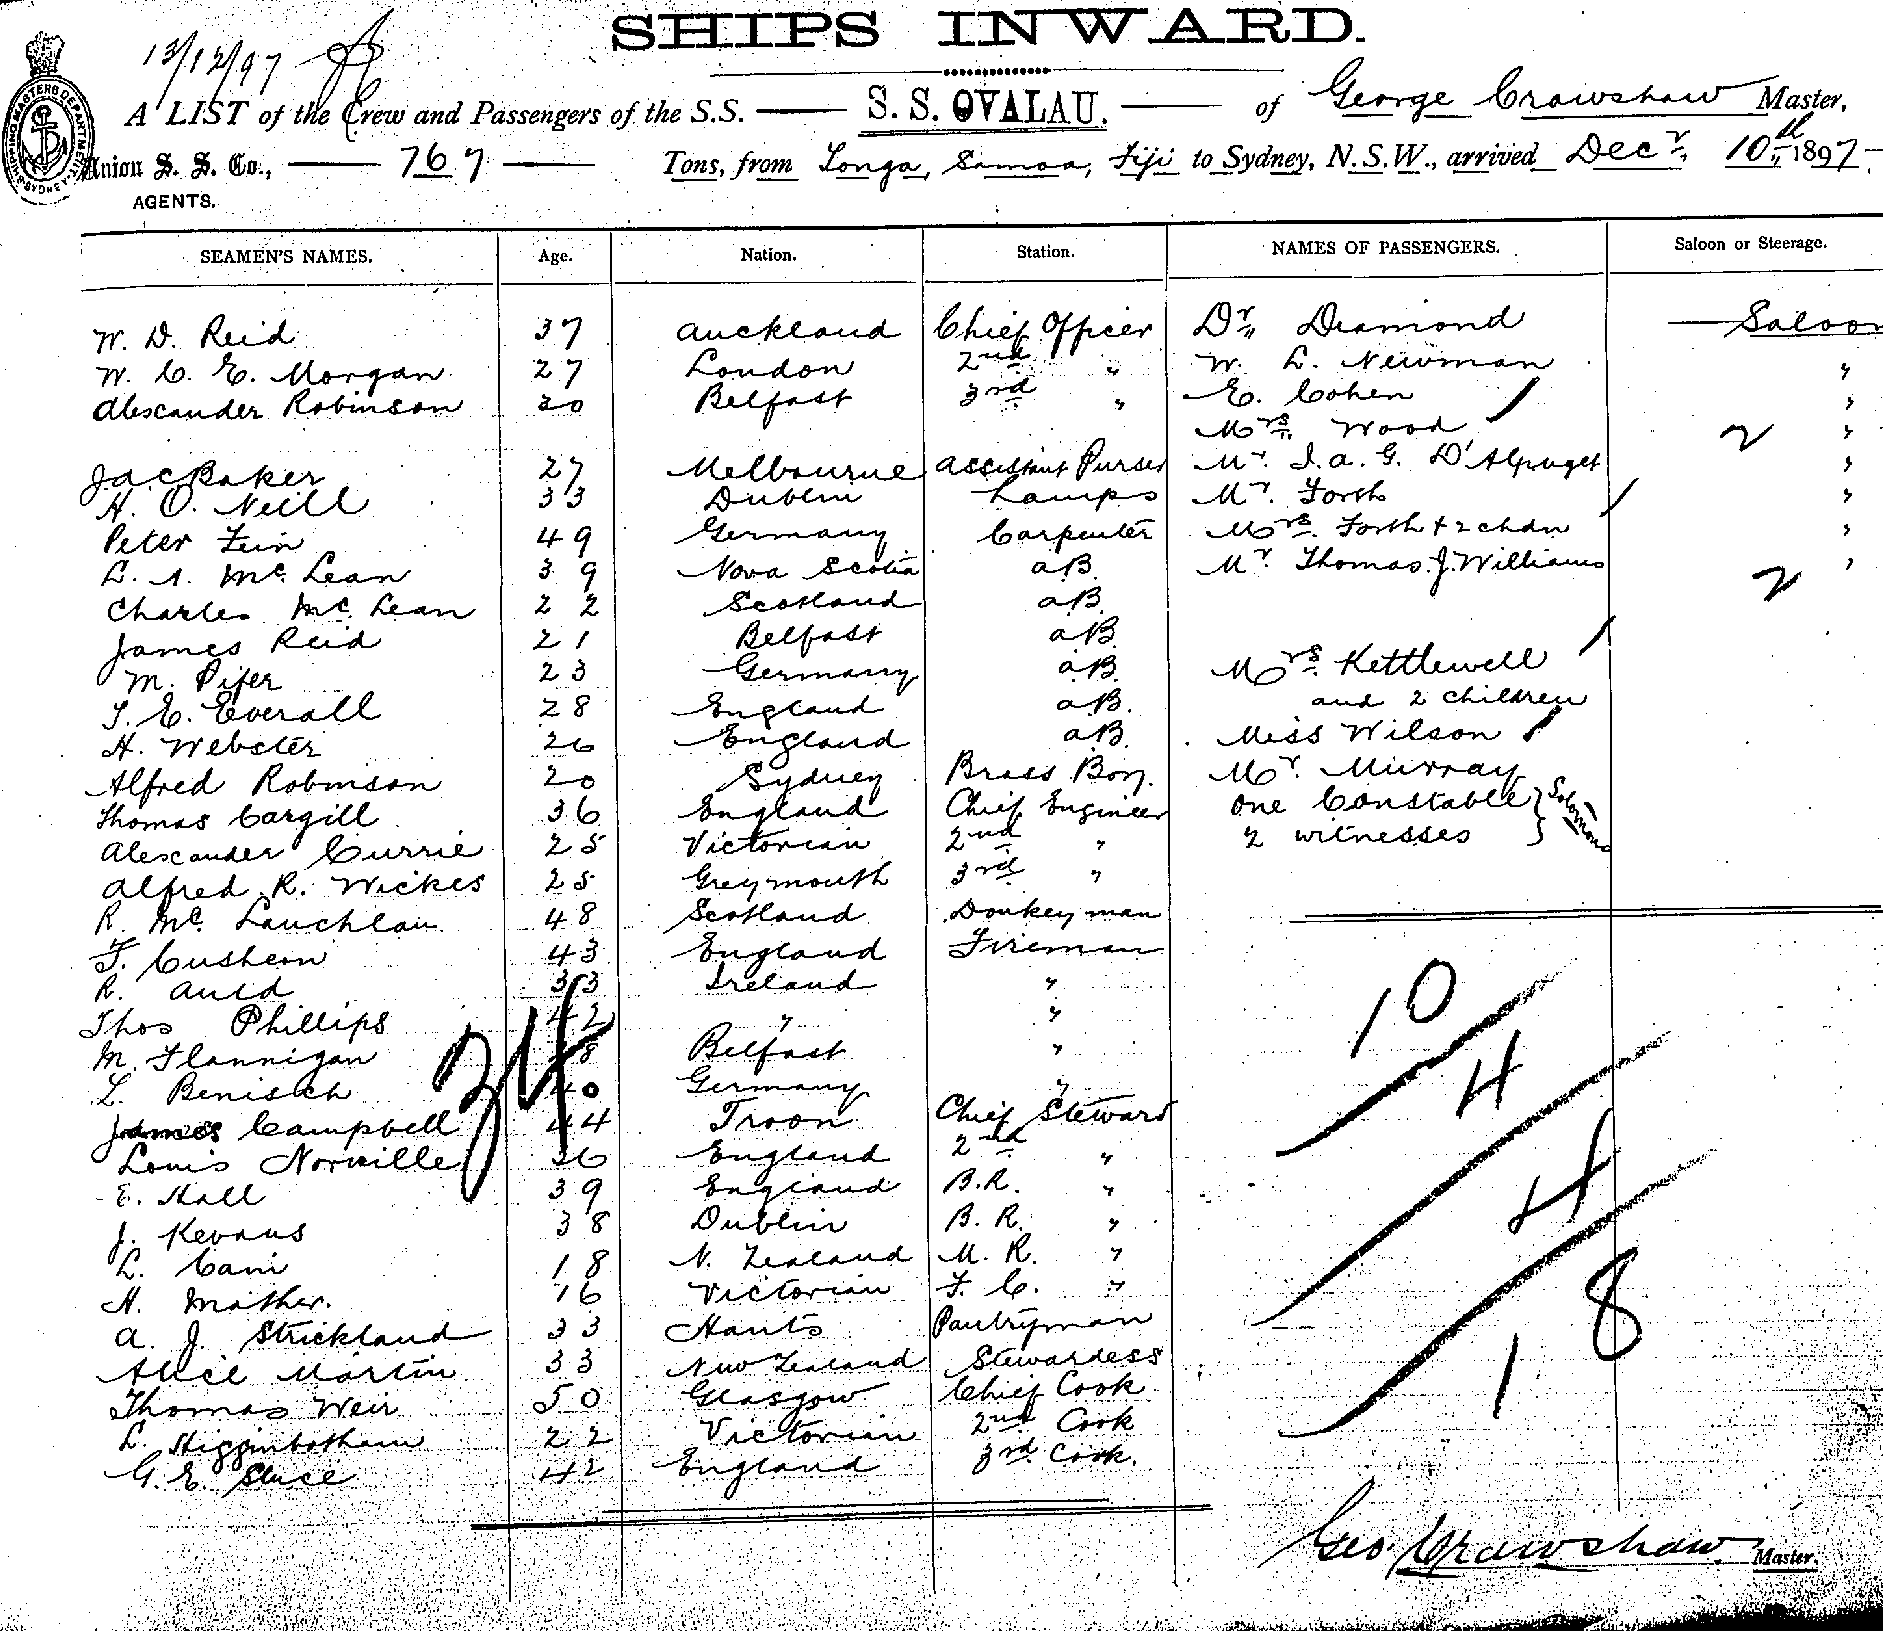 SHIPS INWARD.
13/12/97
A LIST of the Crew and Passengers of the S.S. S. S. OVALAU. of George Crawshaw Master,
Union S. S. Co., 767 Tons, from Tonga, Samoa, Fiji to Sydney, N.S.W., arrived Decr. 10th 1897
AGENTS.
SEAMEN'S NAMES. Age. Nation. Station. NAMES OF PASSENGERS. Saloon or Steerage.
W. D. Reid 37 Auckland Chief Officer Dr. Diamond Saloon
W. C. E. Morgan 27 London 2nd " W. L. Newman "
Alexander Robinson 30 Belfast 3rd " E. Cohen "
Mrs. Wood 2 "
J.A.C Baker 27 Melbourne Assistant Purser Mr. J. A. G. D'Alpuget "
H. O. Neill 33 Dublin Lamps Mr. Forth "
Peter Fein 49 Germany Carpenter Mrs. Forth + 2 chdn "
L. A. McLean 39 Nova Scotia AB. Mr. Thomas J. Williams "
Charles McLean 22 Scotland AB. 2
James Reid 21 Belfast AB
M. Pifer 23 Germany AB. Mrs. Kettlewell
T. E. Everall 28 England AB. and 2 children
H. Webster 26 England AB. Miss Wilson
Alfred Robinson 20 Sydney Brass Boy. Mr. Murray
Thomas Cargill 36 England Chief Engineer One Constable } Solomons
Alexander Currie 25 Victorian 2nd " 2 witnesses }
Alfred R. Wickes 25 Greymouth 3rd "
R. McLauchlan 48 Scotland Donkeyman
F. Cusheon 43 England Fireman
R. Auld 33 Ireland "
Thos Phillips 42 " "
M. Flannigan 8 Belfast "
L. Benisch 40 Germany "
James Campbell 44 Troon Chief Steward
Louis Norville 36 England 2nd "
E. Hall 39 England B.R. "
J. Kevans 38 Dublin B. R. "
L. Cain 18 N. Zealand M. R. "
H. Mather. 16 Victorian F. C. "
A. J. Strickland 33 Hants Pantryman
Alice Martin 33 New Zealand Stewardess
Thomas Weir 50 Glasgow Chief Cook
L. Higginbotham 22 Victorian 2nd Cook
G. E. Sluce 42 England 3rd Cook.
34
10
4
4
18
Geo Crawshaw. Master.